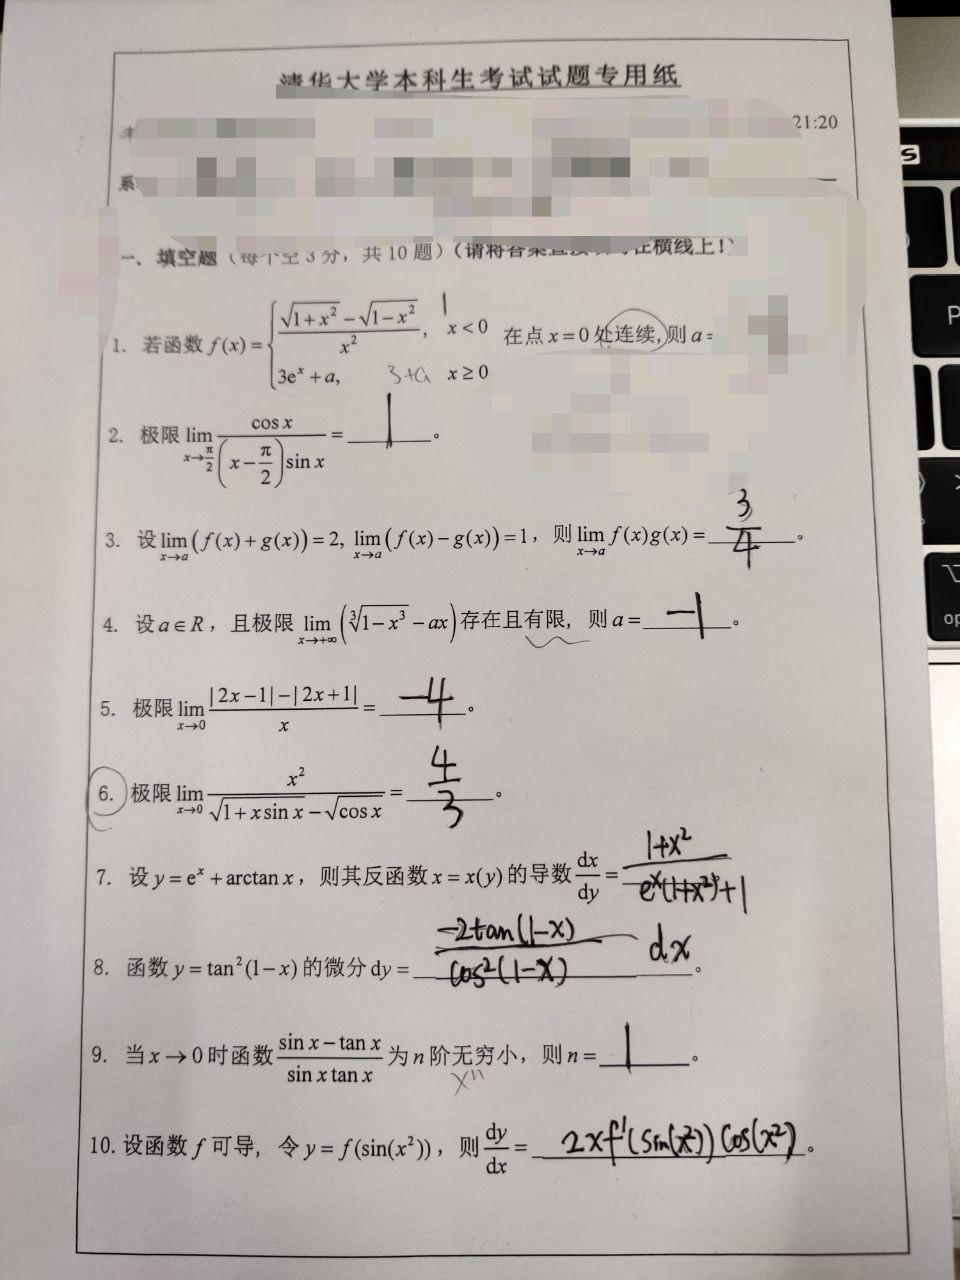 清华大学本科生考试试题专用纸
21:20
系
一、填空题（每个空3分，共10题）（请将答案直接 在横线上!）
1. 若函数 f(x) = { (√(1+x²) − √(1−x²))/x², x < 0 1 在点 x = 0 处连续, 则 a =
3eˣ + a, 3+a x ≥ 0
2. 极限 lim_{x→π/2} cos x/((x − π/2) sin x) = 1 。
3. 设 lim_{x→a} (f(x) + g(x)) = 2, lim_{x→a} (f(x) − g(x)) = 1，则 lim_{x→a} f(x)g(x) = 3/4 。
4. 设 a ∈ R，且极限 lim_{x→+∞} (∛(1−x³) − ax) 存在且有限，则 a = −1 。
5. 极限 lim_{x→0} (|2x−1| − |2x+1|)/x = −4 。
6. 极限 lim_{x→0} x²/(√(1+x sin x) − √(cos x)) = 4/3 。
7. 设 y = eˣ + arctan x，则其反函数 x = x(y) 的导数 dx/dy = (1+x²)/(eˣ(1+x²)+1)
8. 函数 y = tan²(1−x) 的微分 dy = −2tan(1−x)/cos²(1−x) dx 。
9. 当 x → 0 时函数 (sin x − tan x)/(sin x tan x) 为 n 阶无穷小，则 n = 1 。
xⁿ
10. 设函数 f 可导，令 y = f(sin(x²))，则 dy/dx = 2xf'(sin(x²))cos(x²) 。